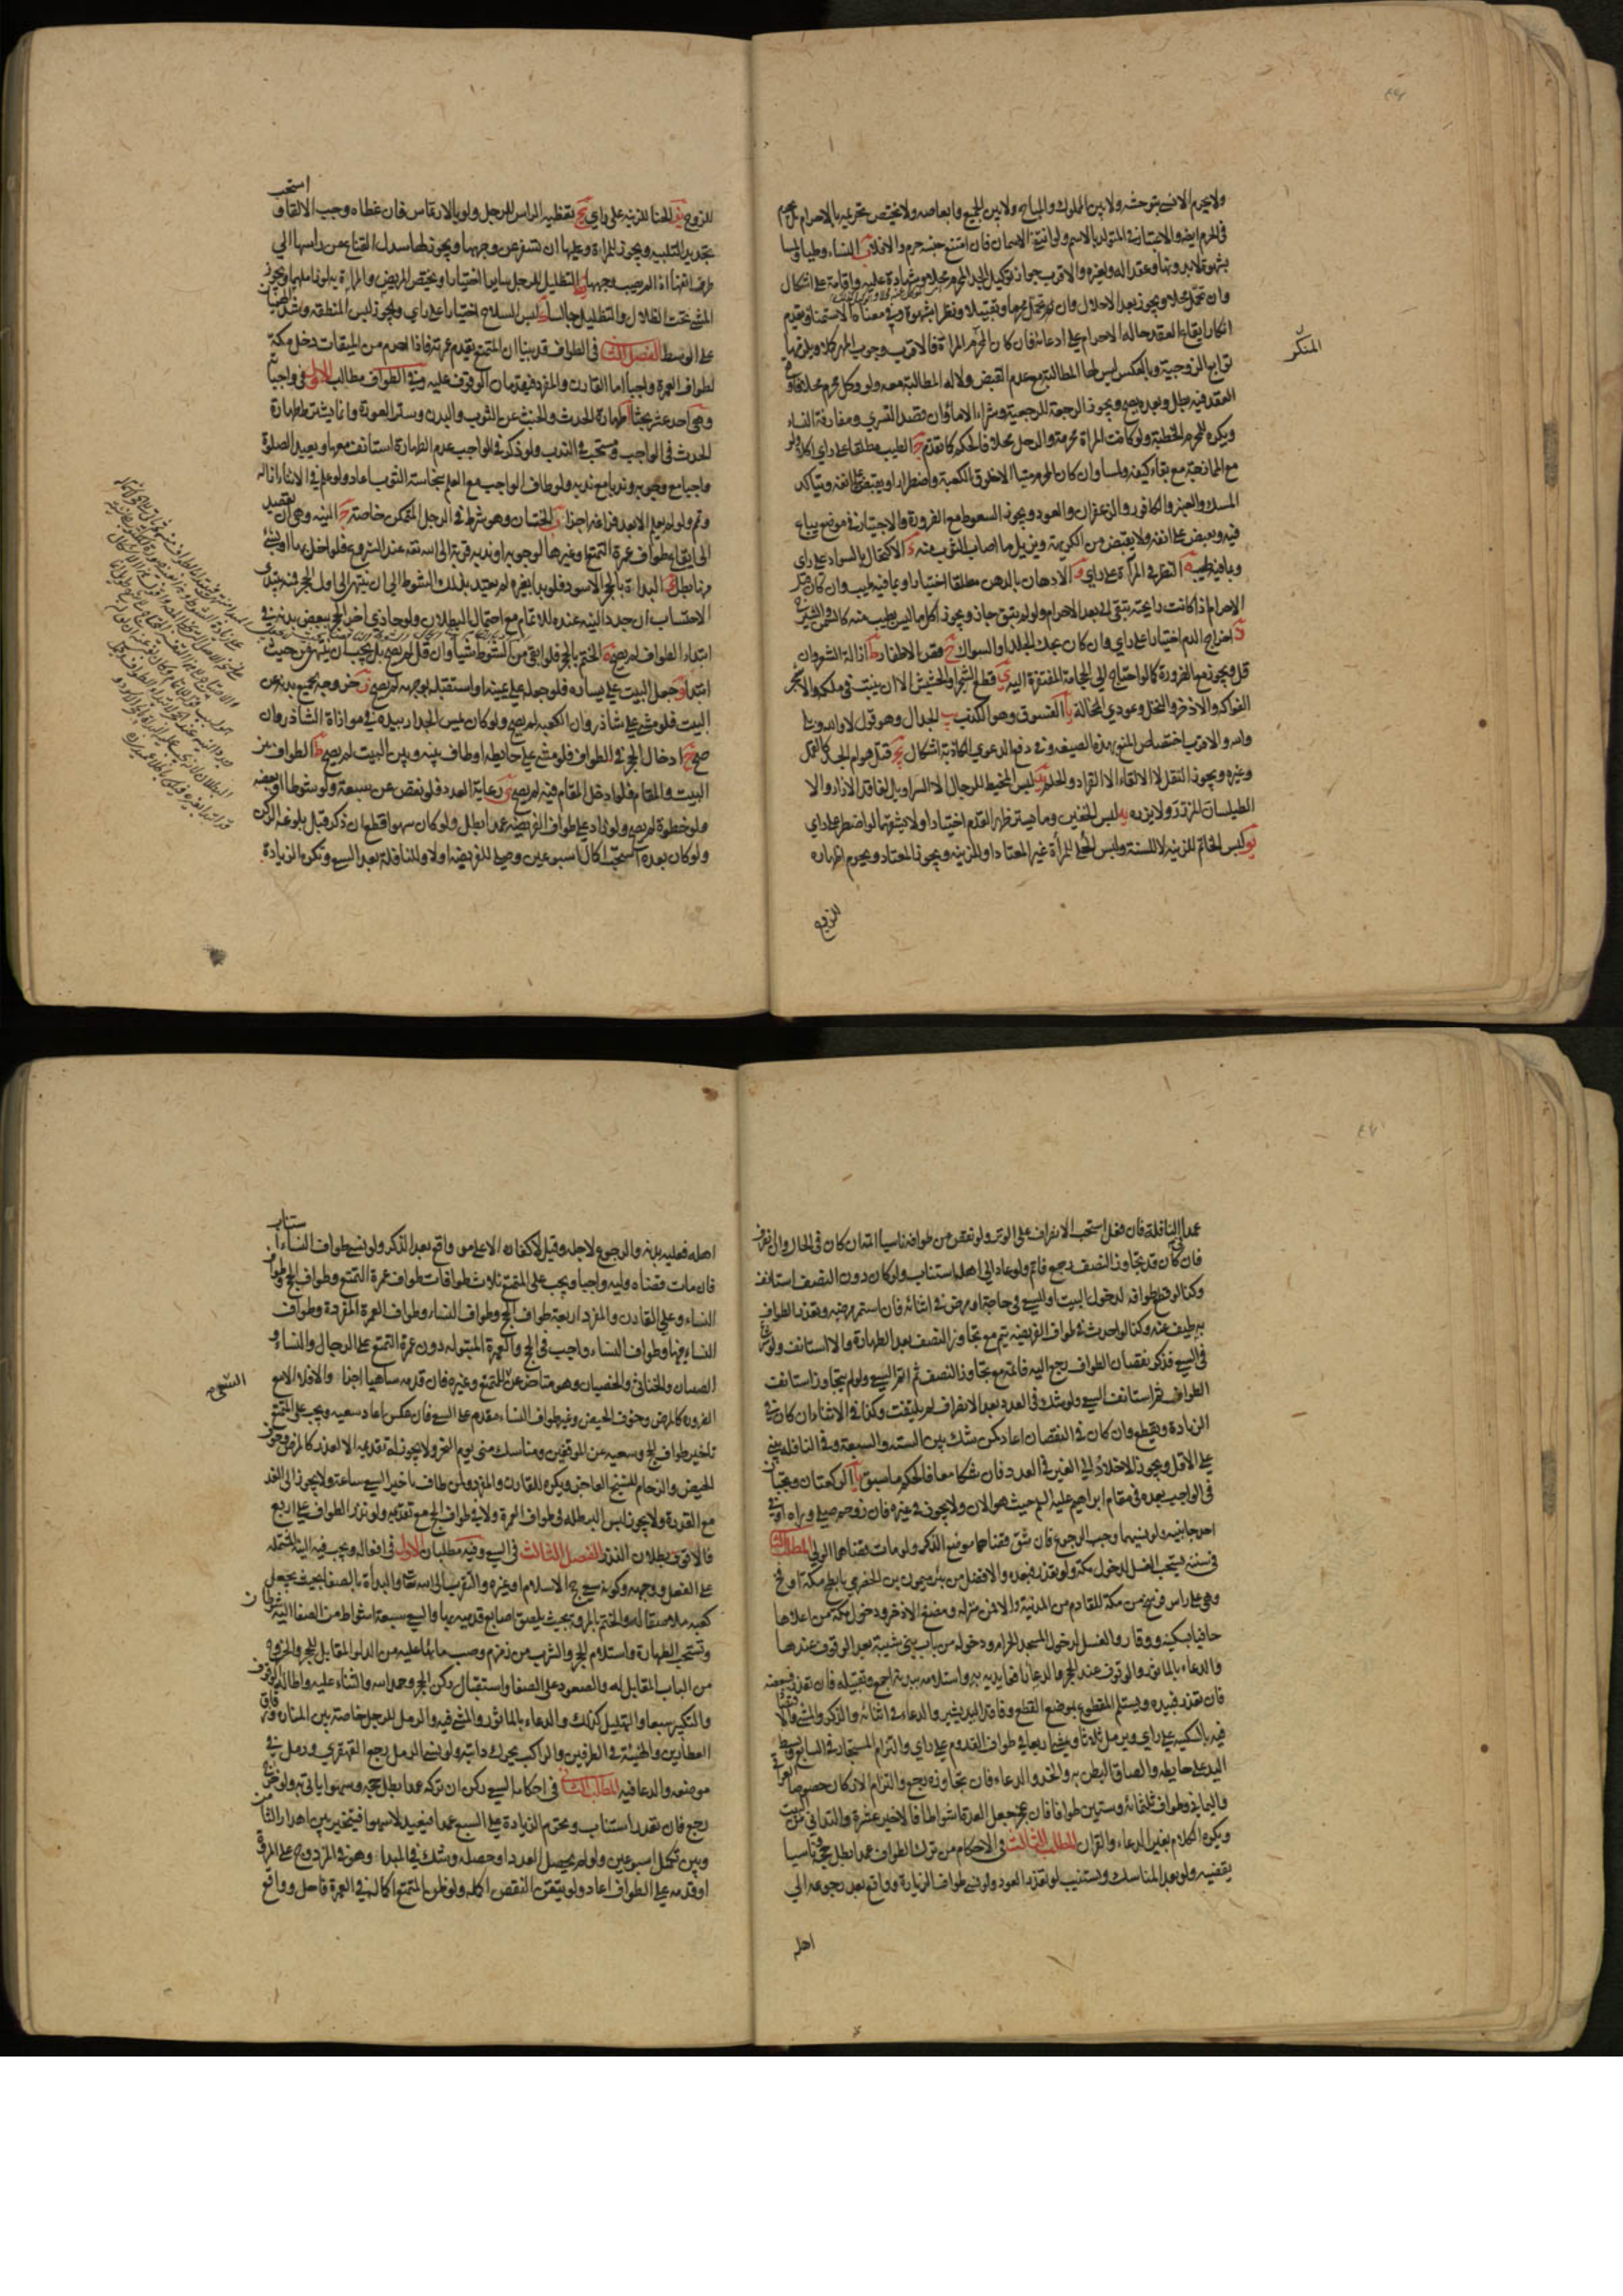 ولا يحرم الانسي بتوحشه ولا بين المملوك والمباح ولا بين الجميع وابعاضه ولا يختص تحريمه بالاحرام بل يحرم
في الحرم ايضا والاعتبار في المتولد بالاسم
النساء وطيا ولمسا
بشهوة وعقدا له ولغيره والاقرب جواز توكيل الجد المحرم محلا وشهادة عليه واقامة على اشكال
وان تحمل محلا ويجوز بعد الاحلال وان تحمل محرما وتقبيلا ونظرا بشهوة وفي معناه الاستمناء ويقدم
انكار ايقاع العقد حالة الاحرام على ادعائه فان كان المنكر المراة فالاقرب وجوب المهر كملا
المنكر
توابع الزوجية وبالعكس ليس لها المطالبة مع عدم القبض ولا له المطالبة معه ولو وكل محرم محلا فاوقع
العقد فيه بطل وبعده يصح ويجوز الرجعة للرجعية وشراء الاماء وان قصد التسري ومفارقة النساء
ويكره للمحرم الخطبة ولو كانت المراة محرمة والرجل محلا فالحكم كما تقدم ج الطيب مطلقا على راي اكلا ولو
مع الممازجة مع بقاء كيفيته ولمسا وان كان المحرم ميتا الا خلوق الكعبة واضطرارا ويقبض على انفه ويتاكد
المسك والعنبر والكافور والزعفران والعود ويجوز السعوط مع الضرورة والاجتياز في موضع يباع
فيه ويقبض على انفه ولا يقبض من الكريهة ويزيل ما اصاب الثوب منه د الاكتحال بالسواد على راي
وبما فيه طيب ه النظر في المرآة على راي و الادهان بالدهن مطلقا اختيارا وبما فيه طيب وان كان قبل
الاحرام اذا كانت رايحته تبقى الى بعد الاحرام ولو لم يبق جاز ويجوز اكل ما ليس بطيب منه كالسمن والشيرج
ز اخراج الدم اختيارا على راي وان كان بحك الجلد او السواك ح قص الاظفار ط ازالة الشعر وان
قل ويجوز مع الضرورة كما لو احتاج الى الحجامة المفتقرة اليه ي قطع الشجر والحشيش الا ان ينبت في ملكه والا شجر
الفواكه والاذخر والنخل وعودي المحالة يا الفسوق وهو الكذب يب الجدال وهو قول لا والله وبلى
والله والاقرب اختصاص المنع بهذه الصيغة وفي دفع الدعوى الكاذبة اشكال يج قتل هوام الجسد كالقمل
وغيره ويجوز النقل لا الالقاء الا القراد والحلم يد لبس المخيط للرجال الا السراويل لفاقد الازار والا
الطيلسان المزرر ولا يزره يه لبس الخفين وما يستر ظهر القدم اختيارا ولا يشقهما لو اضطر على راي
يو لبس الخاتم للزينة لا للسنة ولبس الحلي للمراة غير المعتاد او للزينة ويجوز المعتاد ويحرم اظهاره
للزوج
للزوج يز الحنا للزينة على راي يح تغطية الراس للرجل ولو بالارتماس فان غطاه وجب الالقاء واستحب
تجديد التلبية ويجوز للمراة وعليها ان تسفر عن وجهها ويجوز لها سدل القناع من راسها الى
طرف انفها اذا لم يصب وجهها يط التظليل للرجل سايرا اختيارا ويختص المريض والمراة به لو زاملهما ويجوز
المشي تحت الظلال والتظليل جالسا ك لبس السلاح اختيارا على راي ويجوز لبس المنطقة وشد الهميان
على الوسط الفصل الثاني في الطواف قد بينا ان المتمتع يقدم عمرته فاذا احرم من الميقات دخل مكة
لطواف العمرة واجبا اما القارن والمفرد فيقدمان الوقوف عليه وفي الطواف مطالب الاول في واجباته
وهي احد عشر بحثا ا طهارة الحدث والخبث عن الثوب والبدن وستر العورة وانما يشترط طهارة
الحدث في الواجب ويستحب في الندب ولو ذكر في الواجب عدم الطهارة استانف معها ويعيد الصلوة
واجبا مع وجوبه وندبا مع ندبه ولو طاف الواجب مع العلم بنجاسة الثوب اعاد ولو علم في الاثناء ازاله
وتمم ولو لم يعلم الا بعد فراغه اجزأ ب الختان وهو شرط في الرجل المتمكن خاصة ج النية وهي ان يقصد
الى ايقاع طواف عمرة التمتع او غيرها لوجوبه او ندبه قربة الى الله تعالى عند الشروع فلو اخل بها او بشئ
منها بطل د البداة بالحجر الاسود فلو بدا بغيره لم يعتد بذلك الشوط الى ان ينتهي الى اول الحجر فمنه يبتدئ
الاحتساب ان جدد النية عنده للاتمام مع احتمال البطلان ولو حاذى اخر الحجر ببعض بدنه في
ابتداء الطواف لم يصح ه الختم بالحجر فلو ابقى من الشوط شيئا وان قل لم يصح بل يجب ان ينتهي من حيث
ابتدا و جعل البيت على يساره فلو جعله على يمينه او استقبله بوجهه لم يصح ز خروجه بجميع بدنه عن
البيت فلو مشى على شاذروان الكعبة لم يصح ولو كان يمس الجدار بيده في موازاة الشاذروان
صح ح ادخال الحجر في الطواف فلو مشى على حايطه او طاف بينه وبين البيت لم يصح ط الطواف بين
البيت والمقام فلو ادخل المقام فيه لم يصح ي رعاية العدد فلو نقص عن سبعة ولو شوطا او بعضه
ولو خطوة لم يصح ولو زاد على طواف الفريضة عمدا بطل ولو كان سهوا قطع ان ذكر قبل بلوغه الركن
ولو كان بعده استحب اكمال اسبوعين وصلى للفريضة اولا وللنافلة بعد السعي وتكره الزيادة
عمدا في النافلة فان فعل استحب الانصراف على الوتر ولو نقص من طوافه ناسيا اتمه ان كان في الحال وان انصرف
فان كان قد تجاوز النصف رجع فاتم ولو عاد الى اهله استناب ولو كان دون النصف استانف
وكذا لو قطع طوافه لدخول البيت او السعي في حاجة او مرض في اثنائه فان استمر مرضه وتعذر الطواف
به طيف عنه وكذا لو احدث في طواف الفريضة يتم مع تجاوز النصف بعد الطهارة والا استانف ولو شرع
في السعي فذكر نقصان الطواف رجع اليه فاتمه مع تجاوز النصف ثم اتم السعي ولو لم يتجاوز استانف
الطواف ثم استانف السعي ولو شك في العدد بعد الانصراف لم يلتفت وكذا في الاثناء ان كان في
الزيادة ويقطع وان كان في النقصان اعاد كمن شك بين الستة والسبعة وفي النافلة يبني
على الاقل ويجوز الاخلاد الى الغير في العدد فان شكا معا فالحكم ما سبق يا الركعتان وتجبان
في الواجب بعده في مقام ابراهيم عليه السلم حيث هو الان ولا يجوز في غيره فان زوحم صلى وراه او في
احد جانبيه ولو نسيهما وجب الرجوع فان شق قضاهما موضع الذكر ولو مات قضاهما الولي المطلب الثاني
في سننه يستحب الغسل لدخول مكة ولو تعذر فبعده والافضل من بئر ميمون بن الحضرمي بابطح مكة او فخ
وهي على راس فرسخ من مكة للقادم من المدينة والا فمن منزله ومضغ الاذخر ودخول مكة من اعلاها
حافيا بسكينة ووقار والغسل لدخول المسجد الحرام ودخوله من باب بني شيبة بعد الوقوف عندها
والدعاء بالماثور والوقوف عند الحجر والدعاء رافعا يديه به واستلامه ببدنه اجمع وتقبيله فان تعذر فببعضه
فان تعذر فبيده ويستلم المقطوع بموضع القطع وفاقد اليد يشير والدعاء في اثنائه والذكر والمشي والاقتصاد
فيه بالسكينة على راي ويرمل ثلثا ويمشي اربعا في طواف القدوم على راي والتزام المستجار في السابع وبسط
اليد على حايطه والصاق البطن به والخد والدعاء فان تجاوزه رجع والتزام الاركان خصوصا العراقي
واليماني وطواف ثلثمائة وستين طوافا فان عجز جعل العدة اشواطا فالاخير عشرة والتداني من البيت
ويكره الكلام بغير الدعاء والقران المطلب الثالث في الاحكام من ترك الطواف عمدا بطل حجه وناسيا
يقضيه ولو بعد المناسك ويستنيب لو تعذر العود ولو نسي طواف الزيارة وواقع بعد رجوعه الى
اهله
اهله فعليه بدنة والرجوع لاجله وقيل لا كفارة الا على من واقع بعد الذكر ولو نسي طواف النساء استناب
فان مات قضاه وليه واجبا ويجب على المتمتع ثلاث طوافات طواف عمرة التمتع وطواف الحج وطواف
النساء وعلى القارن والمفرد اربعة طواف الحج وطواف النساء وطواف العمرة المفردة وطواف
النساء فيها وطواف النساء واجب في الحج والعمرة المبتولة دون عمرة التمتع على الرجال والنساء و
الصبيان والخناثى والخصيان وهو متاخر عن السعي للمتمتع وغيره فان قدمه ساهيا اجزا والا فلا الا مع
السعي صح
الضرورة كالمرض وخوف الحيض وغير طواف النساء مقدم على السعي فان عكس اعاد سعيه ويجب على المتمتع
تاخير طواف الحج وسعيه عن الموقفين ومناسك منى يوم النحر ولا يجوز له تقديمه الا لعذر كالمرض وخوف
الحيض والزحام للشيخ العاجز ويكره للقارن والمفرد ولمن طاف تاخير السعي ساعة ولا يجوز الى الغد
مع القدرة ولا يجوز لبس البرطلة في طواف العمرة ولا في طواف الحج مع تقديمه ولو نذر الطواف على اربع
فالاقوى بطلان النذر الفصل الثالث في السعي وفيه مطلبان الاول في افعاله ويجب فيه النية المشتملة
على الفعل ووجهه وكونه سعي حج الاسلام او غيره والتقرب الى الله تعالى والبداة بالصفا بحيث يجعل
كعبه ملاصقا له والختم بالمروة بحيث يلصق اصابع قدميه بها والسعي سبعة اشواط من الصفا اليه شوطان
وتستحب الطهارة واستلام الحجر والشرب من زمزم وصب مائها عليه من الدلو المقابل للحجر والخروج
من الباب المقابل له والصعود على الصفا واستقبال ركن الحجر وحمد الله والثناء عليه واطالة الوقوف
والتكبير سبعا والتهليل كذلك والدعاء بالماثور والمشي فيه والرمل للرجل خاصة بين المنارة وزقاق
العطارين والهينة في الطرفين والراكب يحرك دابته ولو نسي الرمل رجع القهقرى ورمل في
موضعه والدعا فيه المطلب الثاني في احكامه السعي ركن ان تركه عمدا بطل حجه وسهوا ياتي به ولو خرج
رجع فان تعذر استناب ويحرم الزيادة على السبع عمدا فيعيد لا سهوا فيتخير بين اهدار الثامن
وبين تكميل اسبوعين ولو لم يحصل العدد او حصله وشك في المبدا وهو في المزدوج على المروة
او قدمه على الطواف اعاد ولو تيقن النقص اكمله ولو ظن المتمتع اكماله في العمرة فاحل وواقع